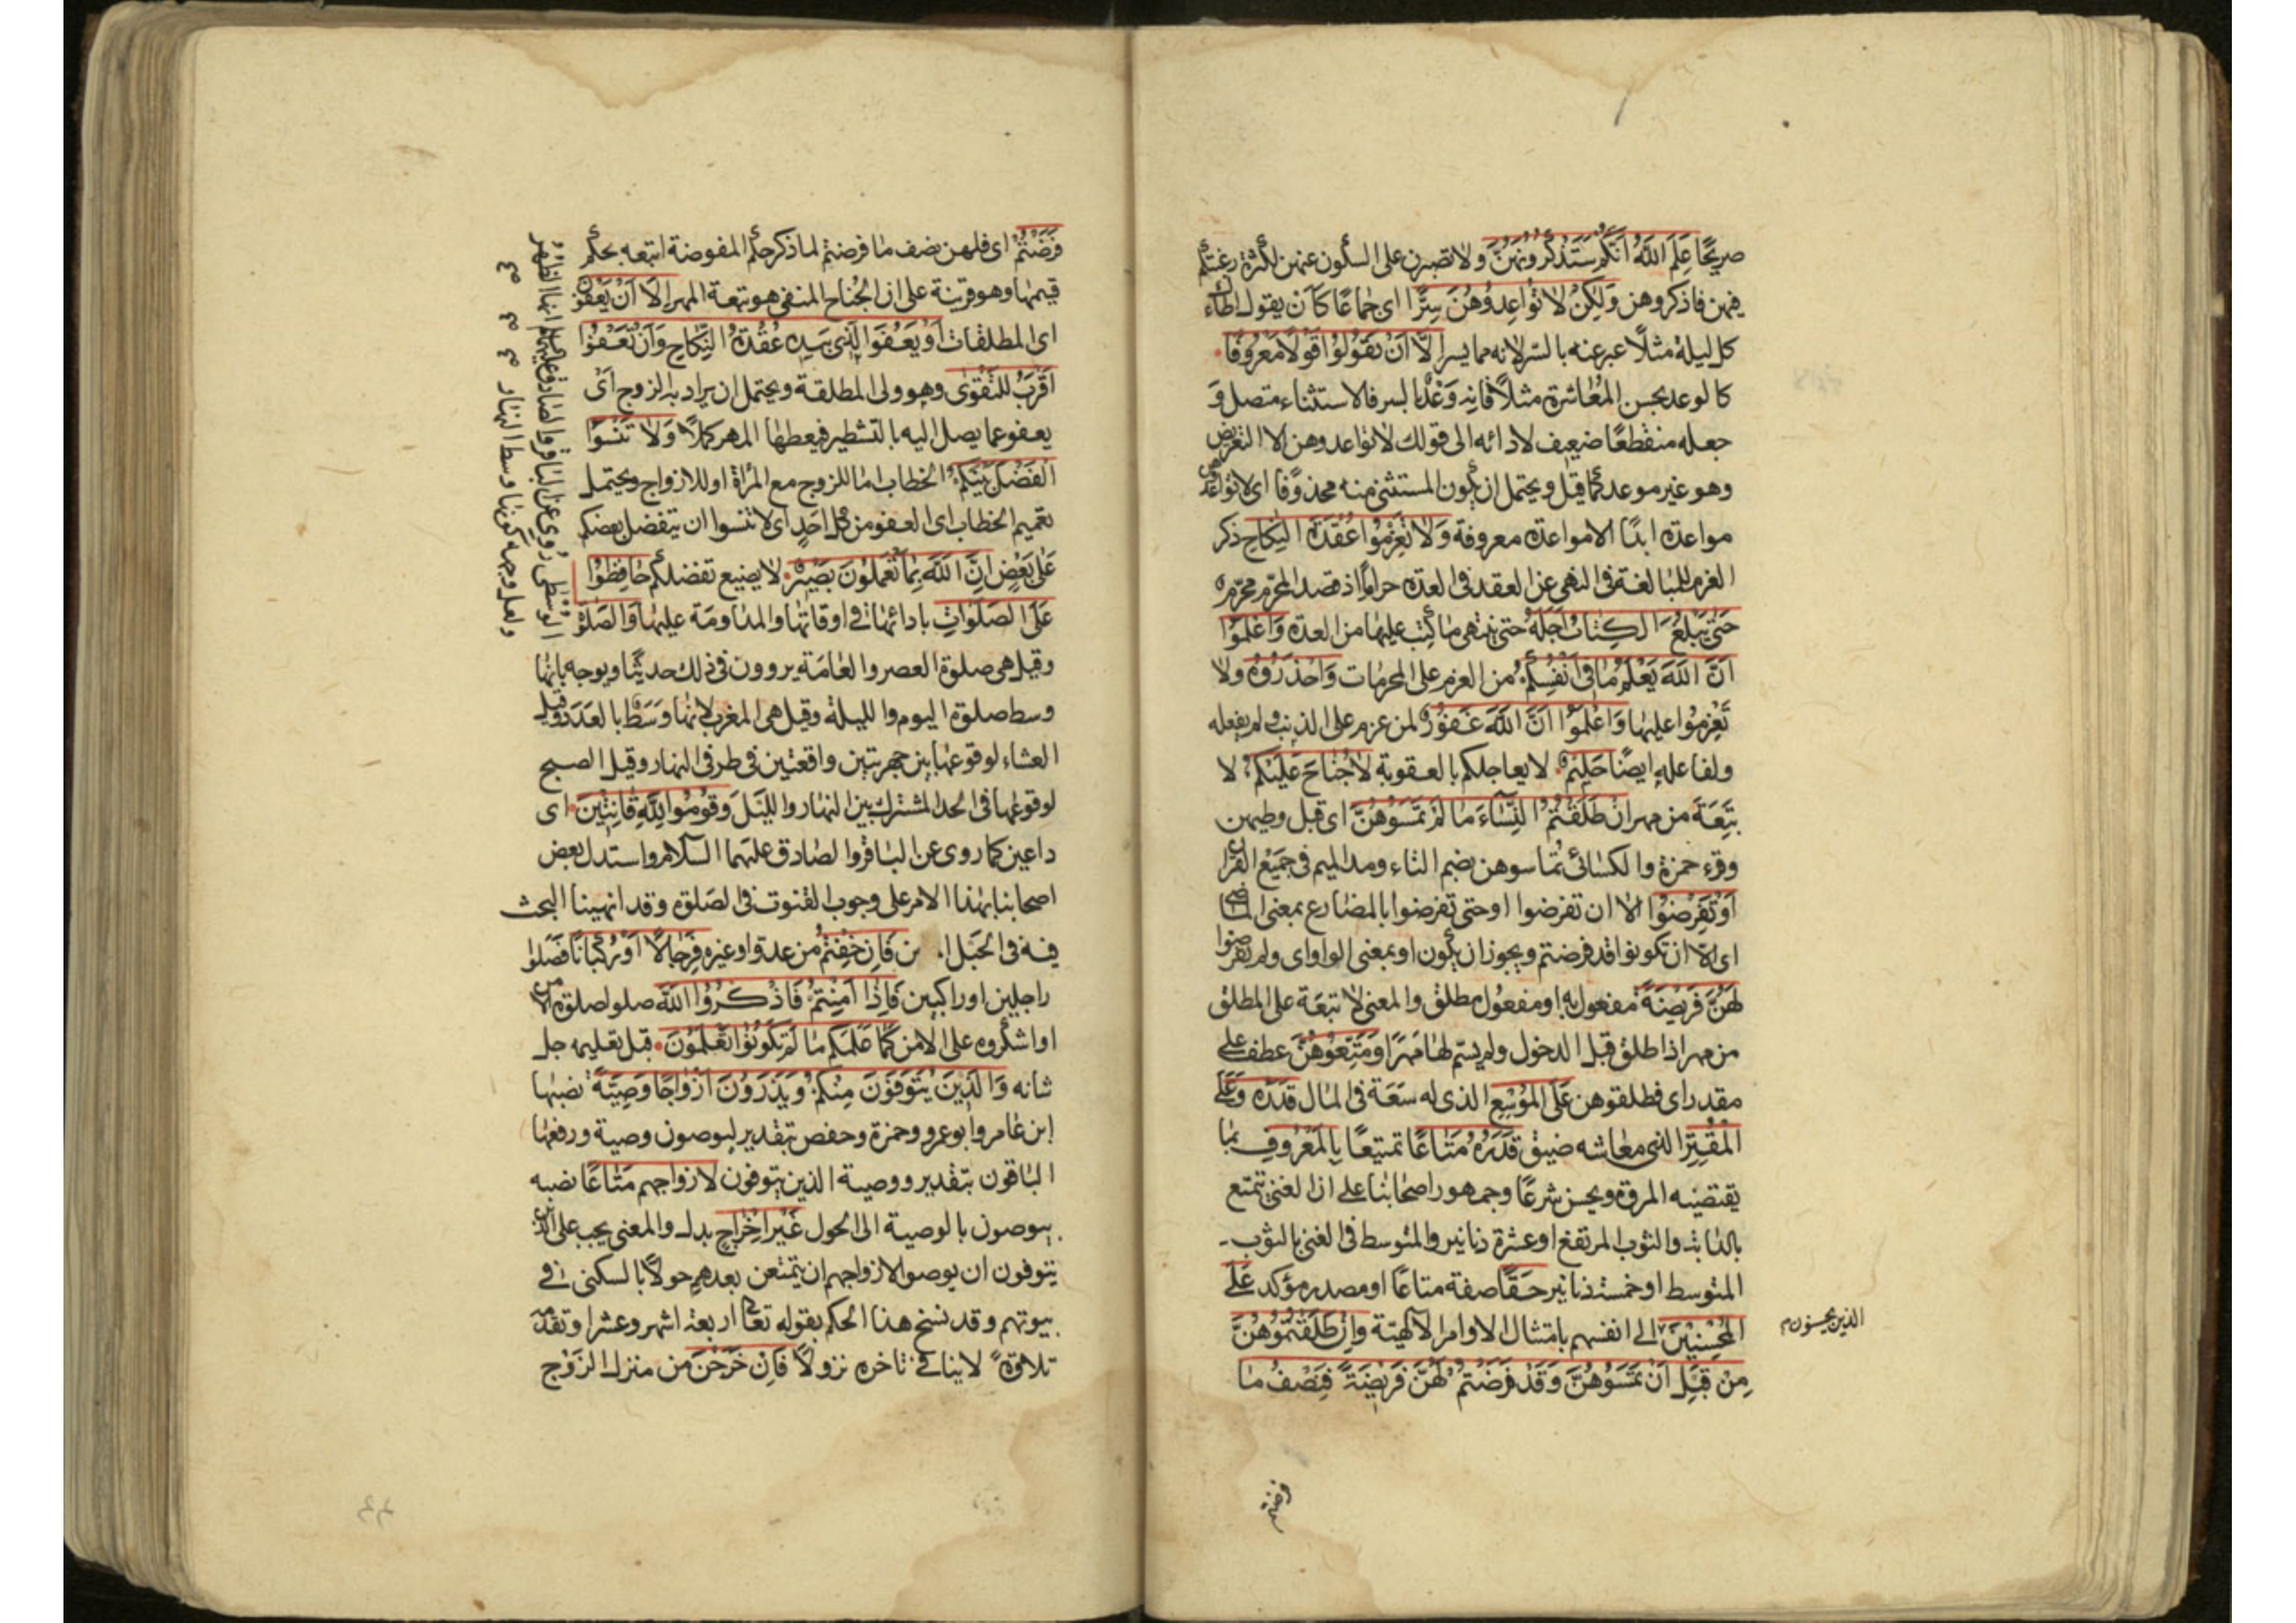 صريحًا عَلِمَ اللَّهُ أَنَّكُمْ سَتَذْكُرُونَهُنَّ ولا تصبرن على السكون عنهن لكثرة رغبتكم
فيهن فاذكروهن وَلَكِنْ لَا تُوَاعِدُوهُنَّ سِرًّا اى جماعًا كان يقول اطاءك
كل ليلة مثلًا عبر عنه بالسّر لانه مما يسر إِلَّا أَنْ تَقُولُوا قَوْلًا مَعْرُوفًا
كالوعد بحسن المعاشرة مثلًا فانه وعد بالسر فالاستثناء متصل و
جعله منقطعًا ضعيف لادائه الى قولك لا تواعدوهن الا التعريض
وهو غير موعد كما قيل ويحتمل ان يكون المستثنى منه محذوفًا اى لا تواعدوهن
مواعدة ابدًا الا مواعدة معروفة وَلَا تَعْزِمُوا عُقْدَةَ النِّكَاحِ ذكر
العزم للمبالغة فى النهى عن العقد فى العدة حرامًا اذ قصد المحرّم محرّم
حَتَّى يَبْلُغَ الْكِتَابُ أَجَلَهُ حتى ينتهى ما كتب عليها من العدة وَاعْلَمُوا
أَنَّ اللَّهَ يَعْلَمُ مَا فِى أَنْفُسِكُمْ من العزم على المحرمات فَاحْذَرُوهُ ولا
تعزموا عليها وَاعْلَمُوا أَنَّ اللَّهَ غَفُورٌ لمن عزم على الذنب ولم يفعله
ولفاعله ايضًا حَلِيمٌ لا يعاجلكم بالعقوبة لَا جُنَاحَ عَلَيْكُمْ لا
تبعة من مهر إِنْ طَلَّقْتُمُ النِّسَاءَ مَا لَمْ تَمَسُّوهُنَّ اى قبل وطيهن
وقرء حمزة والكسائى تماسوهن بضم التاء ومد الميم فى جميع القرآن
أَوْ تَفْرِضُوا الا ان تفرضوا او حتى تفرضوا بالمضارع بمعنى الماضى
اى الّا ان تكونوا قد فرضتم ويجوز ان يكون او بمعنى الواو اى ولم تفرضوا
لَهُنَّ فَرِيضَةً مفعول به او مفعول مطلق والمعنى لا تبعة على المطلق
من مهر اذا طلق قبل الدخول ولم يسم لها مهرًا وَمَتِّعُوهُنَّ عطف على
مقدر اى فطلقوهن عَلَى الْمُوسِعِ الذى له سعة فى المال قَدَرُهُ وَعَلَى
الْمُقْتِرِ الذى معاشه ضيق قَدَرُهُ مَتَاعًا تمتيعًا بِالْمَعْرُوفِ بما
يقتضيه المروة ويحسن شرعًا وجمهور اصحابنا على ان الغنى تمتع
بالدابة والثوب المرتفع او عشرة دنانير والمتوسط فى الغنى بالثوب
المتوسط او خمسة دنانير حَقًّا صفة متاعًا او مصدر مؤكد عَلَى
الْمُحْسِنِينَ الى انفسهم بامتثال الاوامر الالهية وَإِنْ طَلَّقْتُمُوهُنَّ
مِنْ قَبْلِ أَنْ تَمَسُّوهُنَّ وَقَدْ فَرَضْتُمْ لَهُنَّ فَرِيضَةً فَنِصْفُ مَا
الذين يحسنون م
فرضتم
فَرَضْتُمْ اى فلهن نصف ما فرضتم لما ذكر حكم المفوضة اتبعه بحكم
قيمها وهو قرينة على ان الجناح المنفى هو تبعة المهر إِلَّا أَنْ يَعْفُونَ
اى المطلقات أَوْ يَعْفُوَ الَّذِى بِيَدِهِ عُقْدَةُ النِّكَاحِ وَأَنْ تَعْفُوا
أَقْرَبُ لِلتَّقْوَى وهو ولى المطلقة ويحتمل ان يراد به الزوج اى
يعفو عما يصل اليه بالتشطير فيعطها المهر كملًا وَلَا تَنْسَوُا
الْفَضْلَ بَيْنَكُمْ الخطاب اما للزوج مع المرأة او للازواج ويحتمل
تعميم الخطاب اى العفو من كل احد اى لا تنسوا ان يتفضل بعضكم
على بعض إِنَّ اللَّهَ بِمَا تَعْمَلُونَ بَصِيرٌ لا يضيع تفضلكم حَافِظُوا
عَلَى الصَّلَوَاتِ بادائها فى اوقاتها والمداومة عليها وَالصَّلوٰةِ
وقيل هى صلوة العصر والعامة يروون فى ذلك حديثًا ويوجه بانها
وسط صلوة اليوم والليلة وقيل هى المغرب لانها وسط بالعدد وقيل
العشاء لوقوعها بين جهريتين واقعتين فى طرفى النهار وقيل الصبح
لوقوعها فى الحد المشترك بين النهار والليل وَقُومُوا لِلَّهِ قَانِتِينَ اى
داعين كما روى عن الباقر والصادق عليهما السلام واستدل بعض
اصحابنا بهذا الامر على وجوب القنوت فى الصلوة وقد انهينا البحث
فيه فى الحبل ا ن فَإِنْ خِفْتُمْ من عدو او غيره فَرِجَالًا أَوْ رُكْبَانًا فصلوا
راجلين او راكبين فَإِذَا أَمِنْتُمْ فَاذْكُرُوا اللَّهَ صلوا صلوة الامن
او اشكروه على الامن كَمَا عَلَّمَكُمْ مَا لَمْ تَكُونُوا تَعْلَمُونَ قبل تعليمه جل
شانه وَالَّذِينَ يُتَوَفَّوْنَ مِنْكُمْ وَيَذَرُونَ أَزْوَاجًا وَصِيَّةً نصبها
ابن عامر وابو عمرو وحمزة وحفص بتقدير ليوصون وصية ورفعها
الباقون بتقدير ووصية الذين يتوفون لازواجهم مَتَاعًا نصبه
بيوصون بالوصية الى الحول غَيْرَ إِخْرَاجٍ بدل والمعنى يجب على الذين
يتوفون ان يوصوا لازواجهم ان يتمتعن بعدهم حولًا بالسكنى فى
بيوتهم وقد نسخ هذا الحكم بقوله تعا اربعة اشهر وعشرا وتقدمه
تلاوة لا ينافى تاخره نزولًا فَإِنْ خَرَجْنَ من منزل الزوج
الْوُسْطَى روى عن الباقر والصادق عليهما السلام انها الظهر
ولعل وجهه كونها وسط النهار